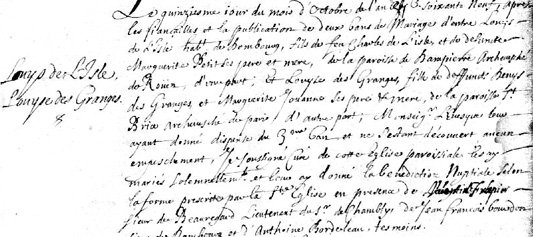 Le quinziesme jour du mois d'Octobre de l'an 1669 Soixante Neuf, apres
les fiancailles et la publication de deux bans de Mariage d'entre Louys
de Lisle habt. de Bombourg, fils de feu Charles de Lisle, et de defuncte
Marguerite Petit ses pere et mere, de la paroisse de Dampierre Archevesché
Louys de L'Isle,
de Rouen, d'une part; et Louyse des Granges, fille de deffunts Denys
Louyse des Granges.
des Granges et Marguerite Jouanne ses pere et mere, de la paroisse St
Brice Archevesché de paris d'autre part; Monseigr. l'Evesque leur
ayant donné dispense du 3me ban et ne s'estant découvert aucun
empeschement, Je Soussigné Curé de cette Eglise paroissiale les ay
mariés solemnellemt. et leur ay donné la benediction Nuptiale selon
la forme prescrite par la Ste Eglise en presence de
sieur de Beauregard Lieutenant du Sr. de Chambly, de Jean François bourdon
de Bombourg et d'Anthoine Bordeleau, tesmoins.